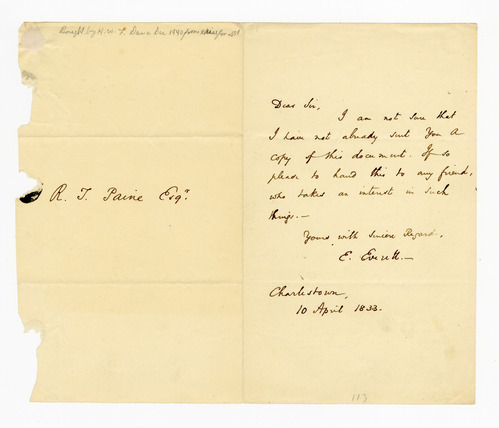 Bought by H. W. L. Dana Dec 1940 from
R. T. Paine Esqr.
Dear Sir,
I am not sure that
I have not already sent You a
copy of this document. If so
please to hand this to any friend,
who takes an interest in such
things.—
Yours, with sincere Regard,
E. Everett.—
Charlestown,
10 April 1833.
113